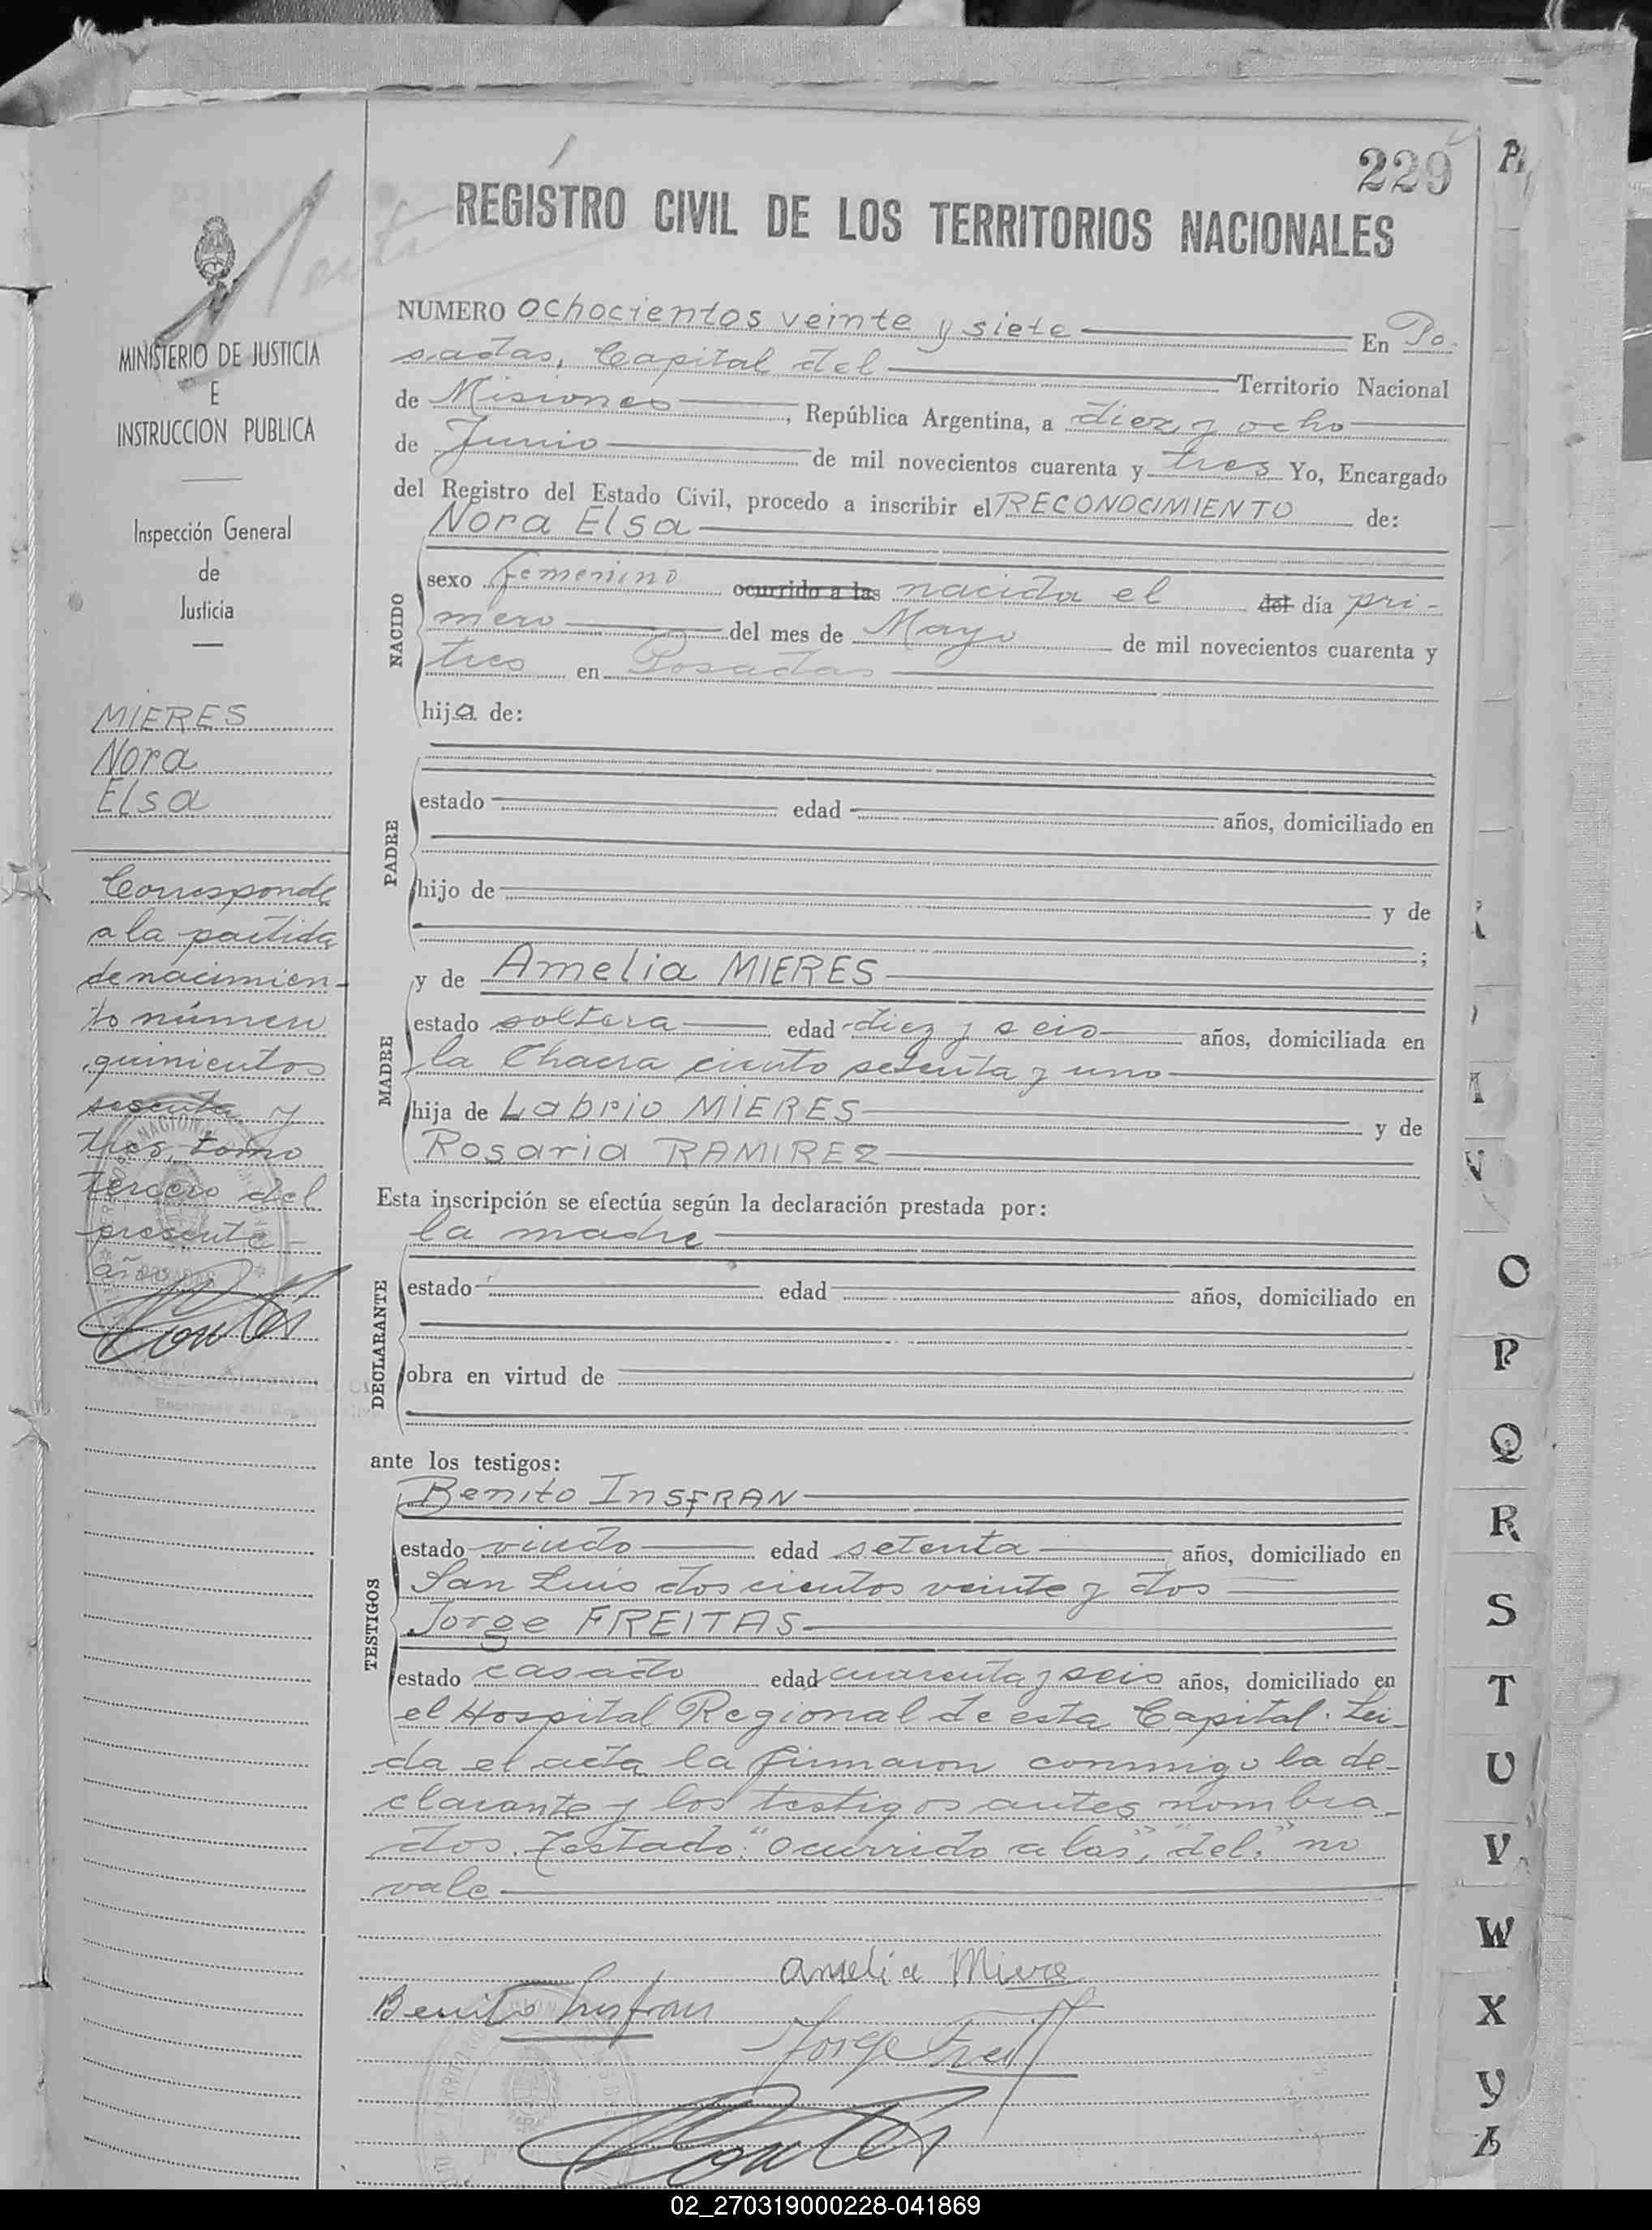 229
REGISTRO CIVIL DE LOS TERRITORIOS NACIONALES
MINISTERIO DE JUSTICIA
E
INSTRUCCION PUBLICA
Inspección General
de
Justicia
MIERES
Nora
Elsa
Corresponde
a la partida
de nacimien-
to número
quinientos
sesenta y
tres, tomo
tercero del
presente
año
NUMERO ochocientos veinte y siete En Po-
sadas, Capital del Territorio Nacional
de Misiones, República Argentina, a diez y ocho
de Junio de mil novecientos cuarenta y tres Yo, Encargado
del Registro del Estado Civil, procedo a inscribir el RECONOCIMIENTO de:
NACIDO
Nora Elsa
sexo femenino ocurrido a las nacida el del día pri-
mero del mes de Mayo de mil novecientos cuarenta y
tres en Posadas
hija de:
PADRE
estado edad años, domiciliado en
hijo de y de
;
y de Amelia MIERES
MADRE
estado soltera edad diez y seis años, domiciliada en
la Chacra ciento setenta y uno
hija de Labrio MIERES y de
Rosaria RAMIREZ
Esta inscripción se efectúa según la declaración prestada por:
la madre
DECLARANTE
estado edad años, domiciliado en
obra en virtud de
ante los testigos:
TESTIGOS
Benito INSFRAN
estado viudo edad setenta años, domiciliado en
San Luis doscientos veinte y dos
Jorge FREITAS
estado casado edad cuarenta y seis años, domiciliado en
el Hospital Regional de esta Capital. Lei-
da el acta la firmaron conmigo la de-
clarante y los testigos antes nombra-
dos. Testado: "ocurrido a las", "del." no
vale
Amelia Miere
Benito Insfran
Jorge Freit
O
P
Q
R
S
T
U
V
W
X
Y
02_270319000228-041869